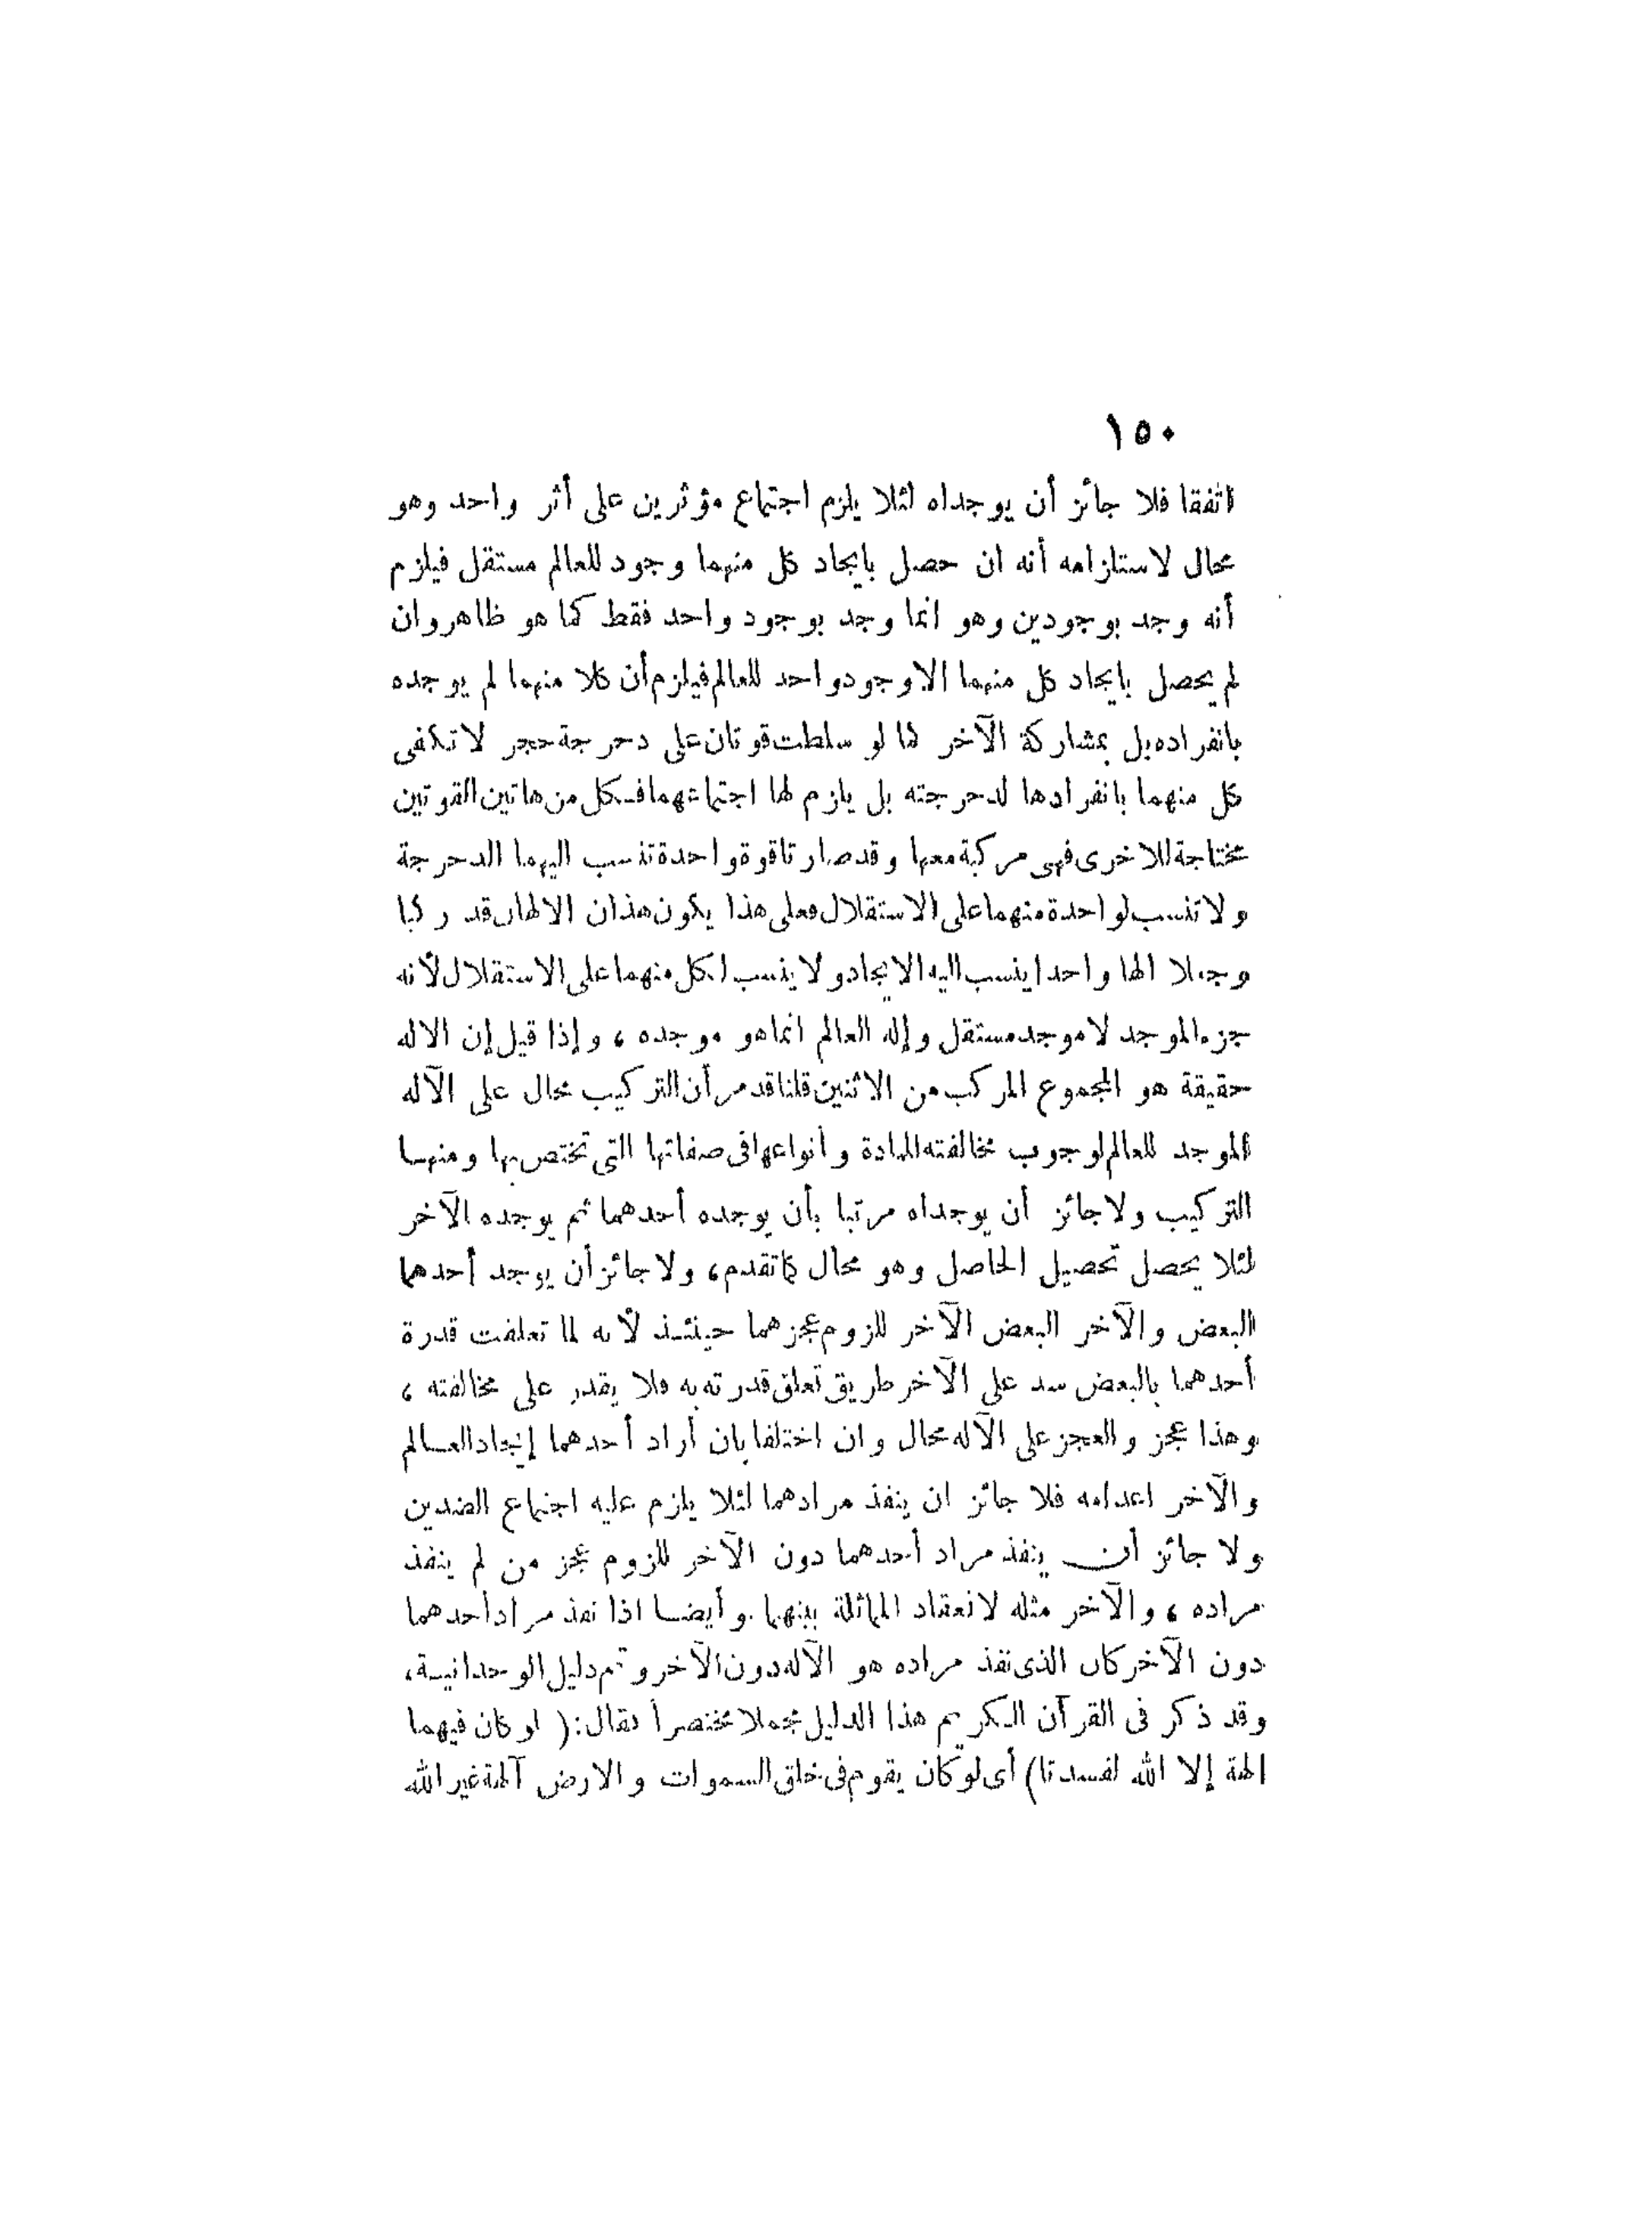 ١٥٠
اتفقا فلا جائز أن يوجداه لئلا يلزم اجتماع مؤثرين على أثر واحد وهو
محال لاستلزامه أنه ان حصل بايجاد كل منهما وجود للعالم مستقل فيلزم
أنه وجد بوجودين وهو انما وجد بوجود واحد فقط كما هو ظاهر وان
لم يحصل بايجاد كل منهما الا وجود واحد للعالم فيلزم أن كلا منهما لم يوجده
بانفراده بل بمشاركة الآخر كما لو سلطت قوتان على دحرجة حجر لا تكفى
كل منهما بانفرادها لدحرجته بل يلزم لها اجتماعهما فكل من هاتين القوتين
محتاجة للاخرى فهى مركبة معها وقد صارتا قوة واحدة تنسب اليهما الدحرجة
ولا تنسب لواحدة منهما على الاستقلال فعلى هذا يكون هذان الالهان قد ركبا
وجعلا الها واحدا ينسب اليه الايجاد ولا ينسب لكل منهما على الاستقلال لأنه
جزء الموجد لا موجد مستقل وإله العالم انما هو موجده ، وإذا قيل إن الاله
حقيقة هو المجموع المركب من الاثنين قلنا قد مر أن التركيب محال على الآله
الموجد للعالم لوجوب مخالفته للمادة وأنواعها فى صفاتها التى تختص بها ومنها
التركيب ولا جائز أن يوجداه مرتبا بأن يوجده أحدهما ثم يوجده الآخر
لئلا يحصل تحصيل الحاصل وهو محال كما تقدم ، ولا جائز أن يوجد أحدهما
البعض والآخر البعض الآخر للزوم عجزهما حينئذ لأنه لما تعلقت قدرة
أحدهما بالبعض سد على الآخر طريق تعلق قدرته به فلا يقدر على مخالفته ،
وهذا عجز والعجز على الآله محال وان اختلفا بان أراد أحدهما إيجاد العالم
والآخر اعدامه فلا جائز ان ينفذ مرادهما لئلا يلزم عليه اجتماع الضدين
ولا جائز أن ينفذ مراد أحدهما دون الآخر للزوم عجز من لم ينفذ
مراده ، والآخر مثله لانعقاد المماثلة بينهما وأيضا اذا نفذ مراد أحدهما
دون الآخر كان الذى نفذ مراده هو الآله دون الآخر وتم دليل الوحدانية ،
وقد ذكر فى القرآن الكريم هذا الدليل مجملا مختصراً فقال : ( لو كان فيهما
الهة إلا الله لفسدتا) أى لو كان يقوم فى خلق السموات والارض آلهة غير الله